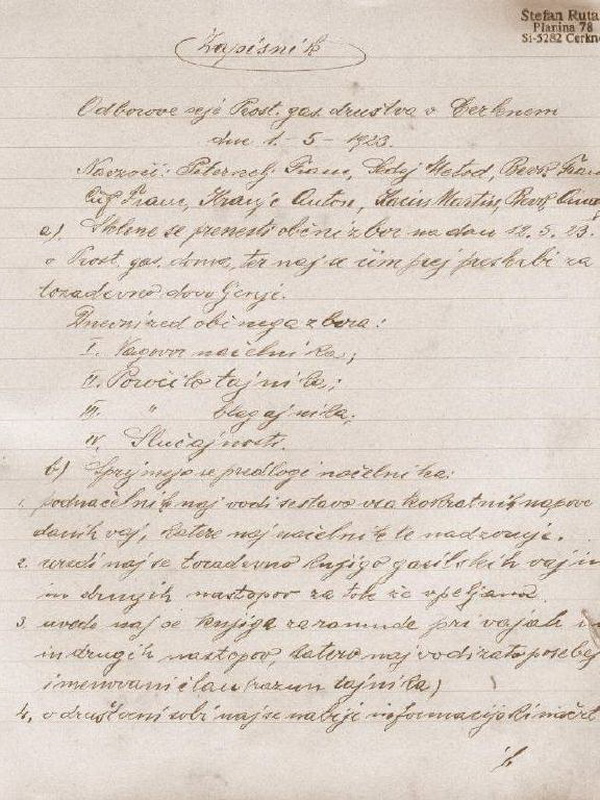 Štefan Ruta
Planina 78
SI-5282 Cerkno
Zapisnik
Odborove seje Prost. gas. društva v Cerknem
dne 1-5-1923.
Navzoči: Peternelj Franc, Sedej Metod, Bevk Fran
Čuf Franc, Kranjc Anton, Lacius Martin, Bevk
a) Sklene se prenesti občni zbor na dan 12.5.23.
v Prost. gas. domu, ter naj se čim prej preskrbi za
tozadevno dovoljenje.
Dnevni red občnega zbora:
I. Nagovor načelnika;
II. Poročilo tajnika;
III. " blagajnika;
IV. Slučajnosti.
b) Sprejmejo se predlogi načelnika:
1. podnačelnik naj vodi sestavo vsakokratnih napove
danih vaj, katere naj načelnik le nadzoruje.
2. uredi naj se tozadevno knjigo gasilskih vaj in
in drugih nastopov za tok že vpeljana.
3. uvede naj se knjiga za zamude pri vajah in
in drugih nastopov, katero naj vodi zato posebej
imenovani član (razun tajnika)
4. v društveni sobi naj se nabije informacijski načrt